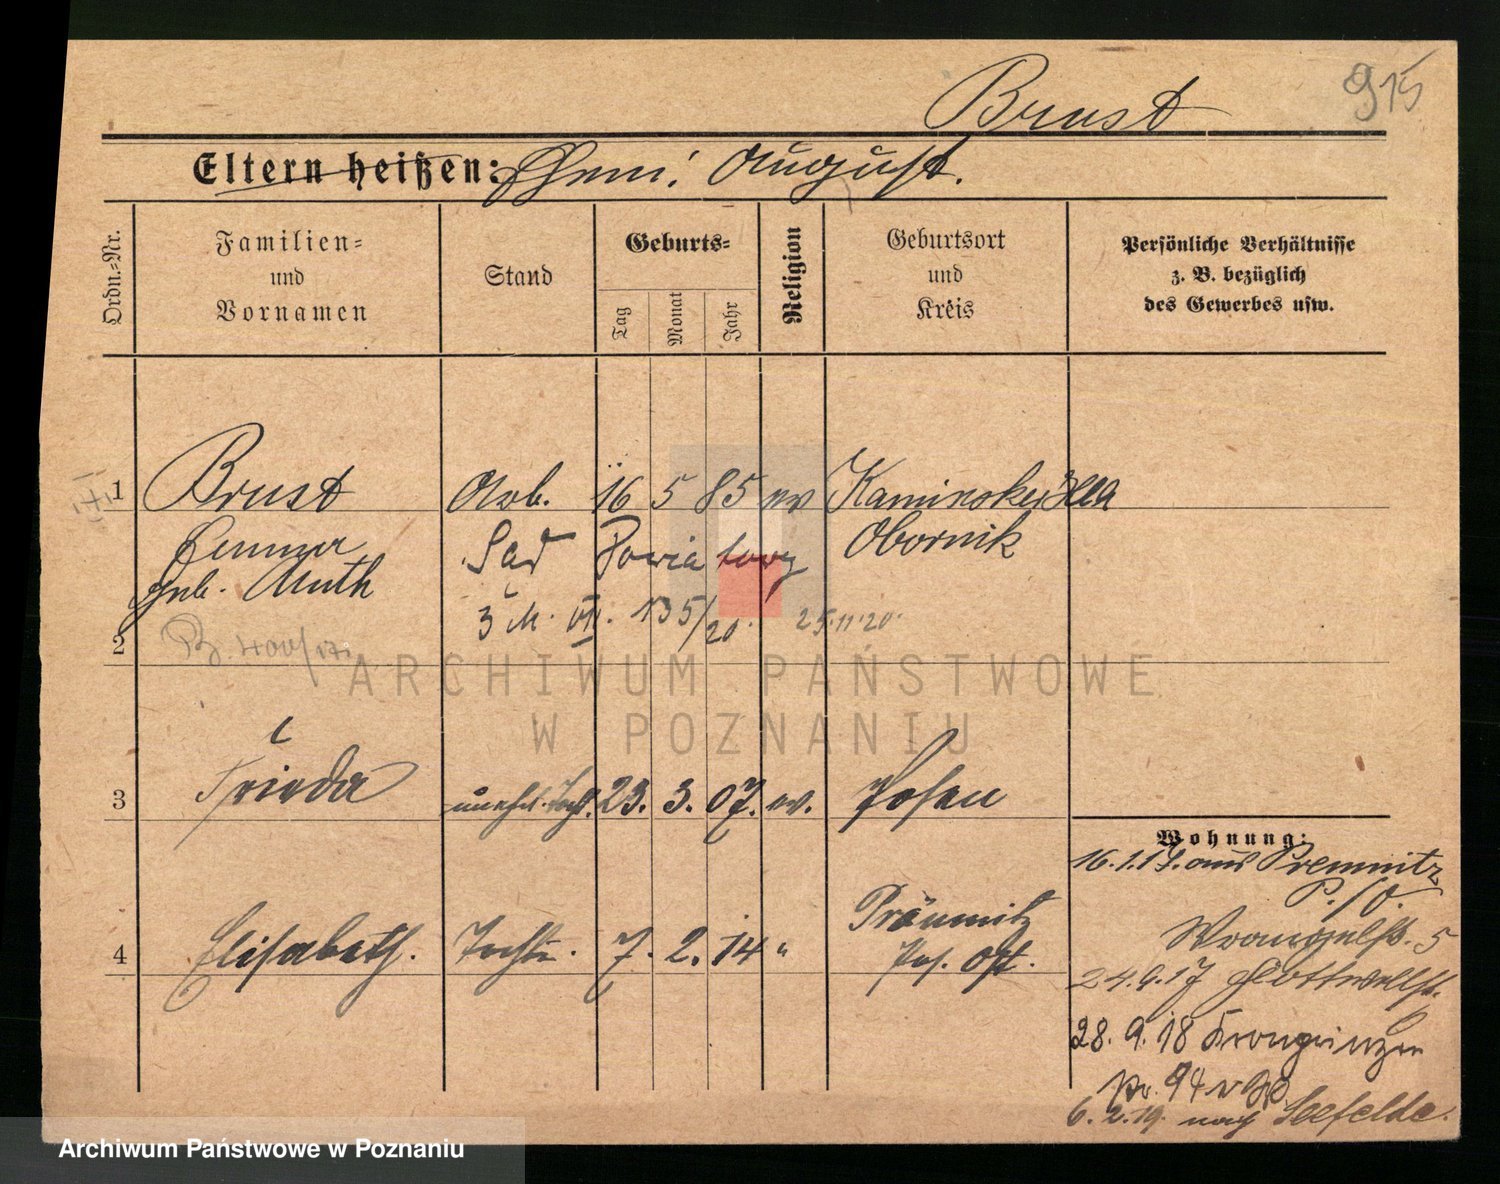 915
Brust
Eltern heißen: Ehem: August.
Ordn.=Nr.
Familien=
und
Vornamen
Stand
Geburts=
Tag
Monat
Jahr
Religion
Geburtsort
und
Kreis
Persönliche Verhältnisse
z. B. bezüglich
des Gewerbes usw.
1 Brust Arb. 16 5 85 ev Kaminsker
Emma Sąd Powiatowy Obornik
geb. Muth
3 M. VII. 135/20. 25.11.20.
2
ARCHIWUM PAŃSTWOWE
W POZNANIU
3 Frieda unehel. Tocht. 23. 3. 07. ev. Posen
Wohnung:
16.1.17. aus Premnitz
P./O.
4 Elisabeth. Tochter. 7. 2. 14 " Präumnitz
Pos. Ost.
Wrangelstr. 5
24.9.17 Gottwellstr.
28. 9. 18 Kronprinzen
94
6. 2. 19. nach Seefelde.
Archiwum Państwowe w Poznaniu